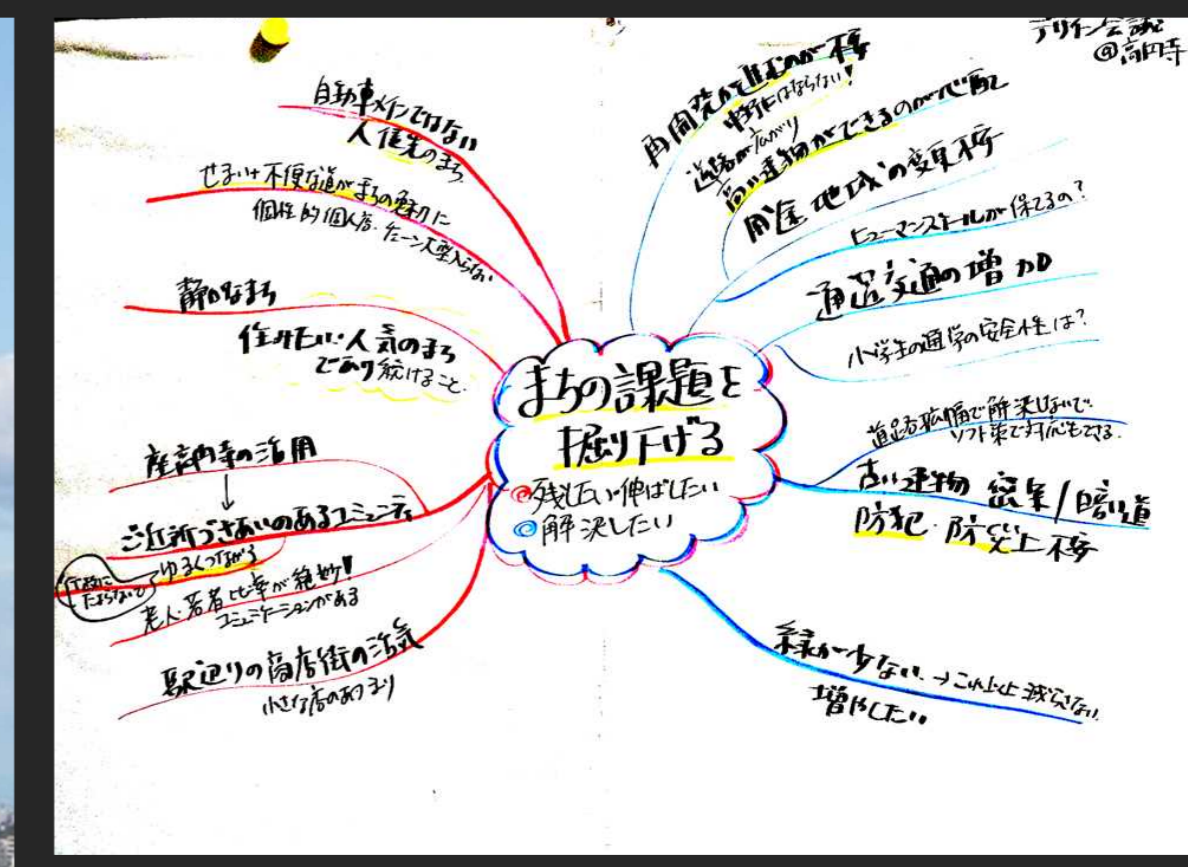 デザイン会議
@高円寺
まちの課題を
掘り下げる
残したい・伸ばしたい
解決したい
自動車メインではない
人優先のまち
せまい+不便な道がまちの魅力に
個性的個人店・チェーン大型入らない
静かなまち
住みたい・人気のまち
であり続けること
座高円寺の活用
ご近所づきあいのあるコミュニティ
ゆるくつながる
行政に
たよらない
老人・若者比率が絶妙!
コミュニケーションがある
駅辺りの商店街の活気
小さな店のあつまり
再開発が進むのが不安
中野にはならない!
道路が広がり
高い建物ができるのが心配
用途地域の変更不安
ヒューマンスケールが保てるの?
通過交通の増加
小学生の通学の安全性は?
道路拡幅で解決しないで
ソフト策で対応もできる
古い建物 密集/暗い道
防犯・防災上不安
緑が少ない→これ以上減らさない
増やしたい